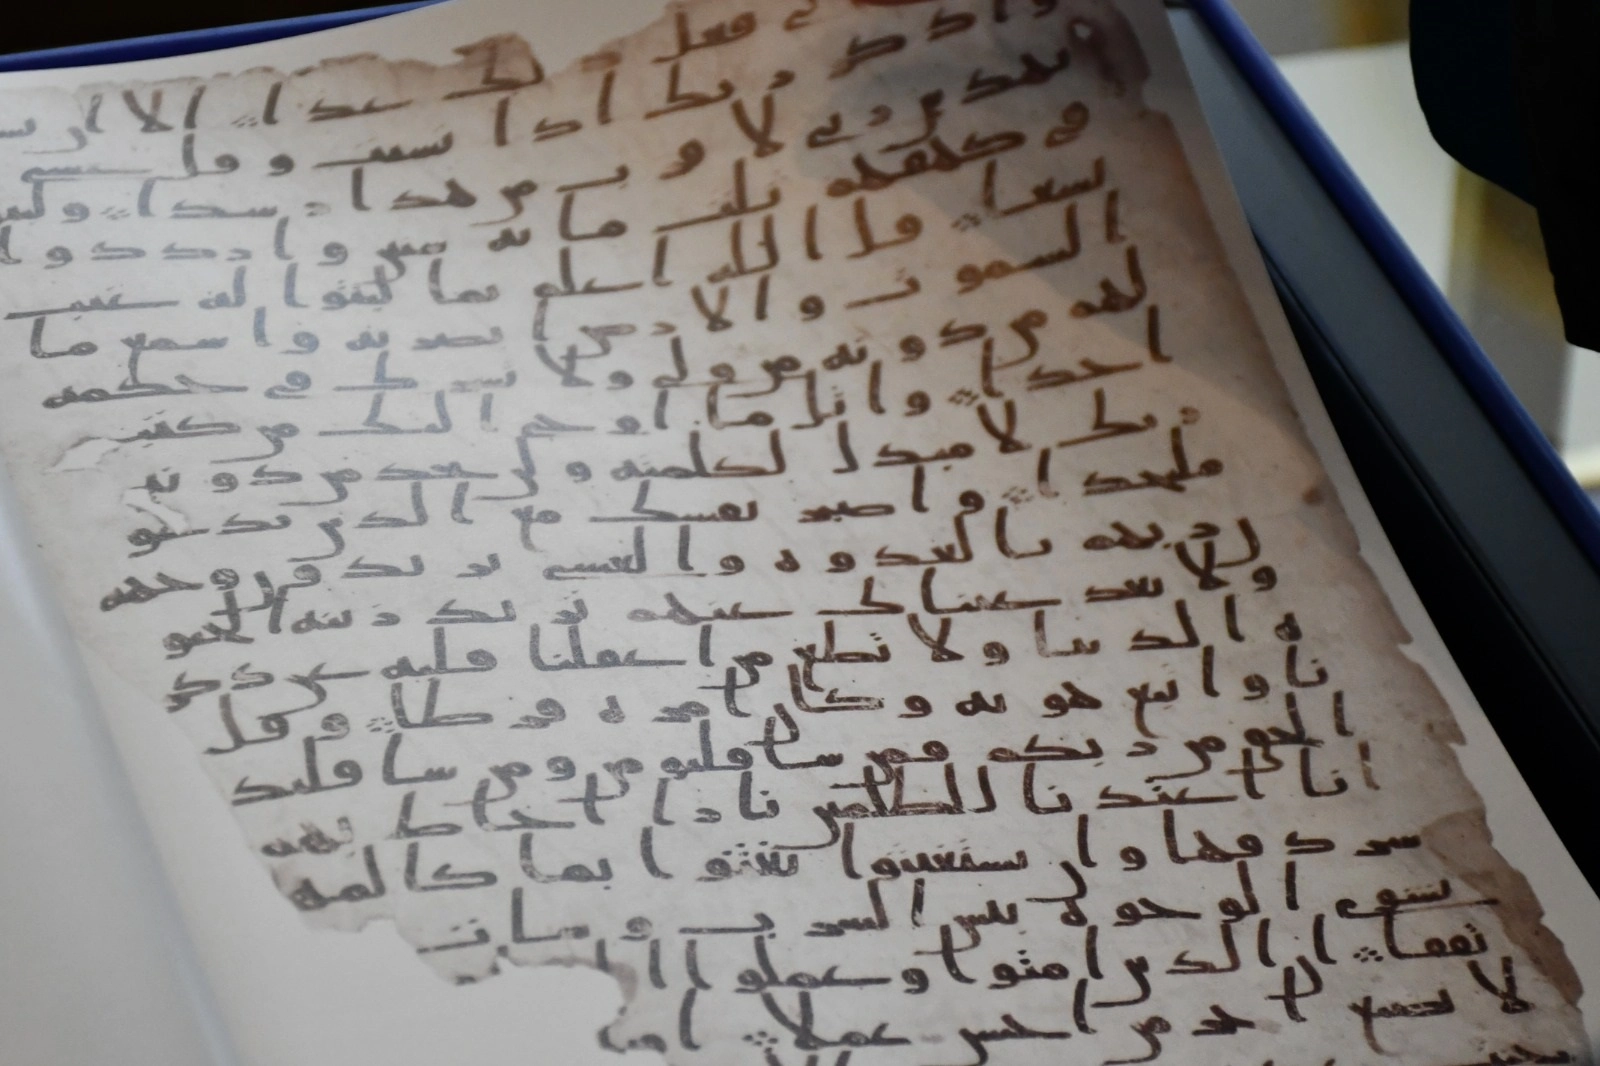 فعل ذلك غدا الا ان يسا
واذكر ربك اذا نسيت وقل عسى
يهدين ربي لاقرب من هذا رشدا ولبثوا
في كهفهم ثلث مائه سنين وازدادوا
تسعا قل الله اعلم بما لبثوا له غيب
السموت والارض ابصر به واسمع ما
لهم من دونه من ولي ولا يشرك في حكمه
احدا واتل ما اوحي اليك من كتب
ربك لا مبدل لكلمته ولن تجد من دونه
ملتحدا واصبر نفسك مع الذين يدعو
ن ربهم بالغدوه والعشي يريدون وجهه
ولا تعد عيناك عنهم تريد زينه الحيو
ه الدنيا ولا تطع من اغفلنا قلبه عن ذكر
نا واتبع هويه وكان امره فرطا وقل
الحق من ربكم فمن شا فليومن ومن شا فليكفر
انا اعتدنا للظلمين نارا احاط بهم
سردقها وان يستغيثوا يغثوا بما كالمهل
يشوي الوجوه بئس الشرب وسات
تفقا ان الذين امنوا وعملوا ا
لا نضيع اجر من احسن عملا